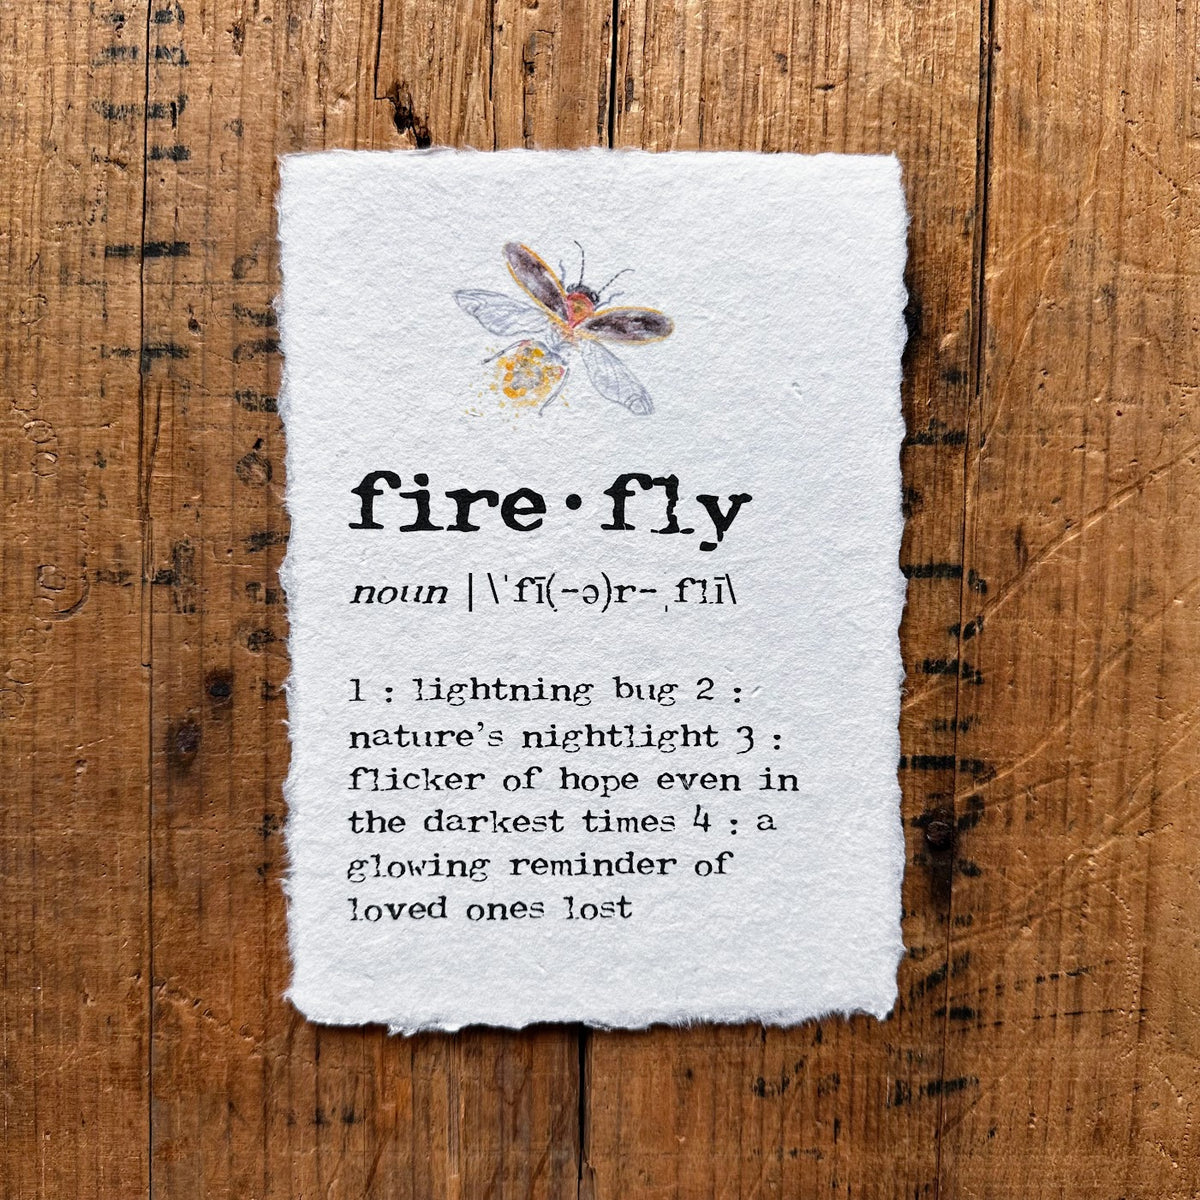 fire·fly
noun | \ˈfī(-ə)r-ˌflī\
1 : lightning bug 2 :
nature's nightlight 3 :
flicker of hope even in
the darkest times 4 : a
glowing reminder of
loved ones lost